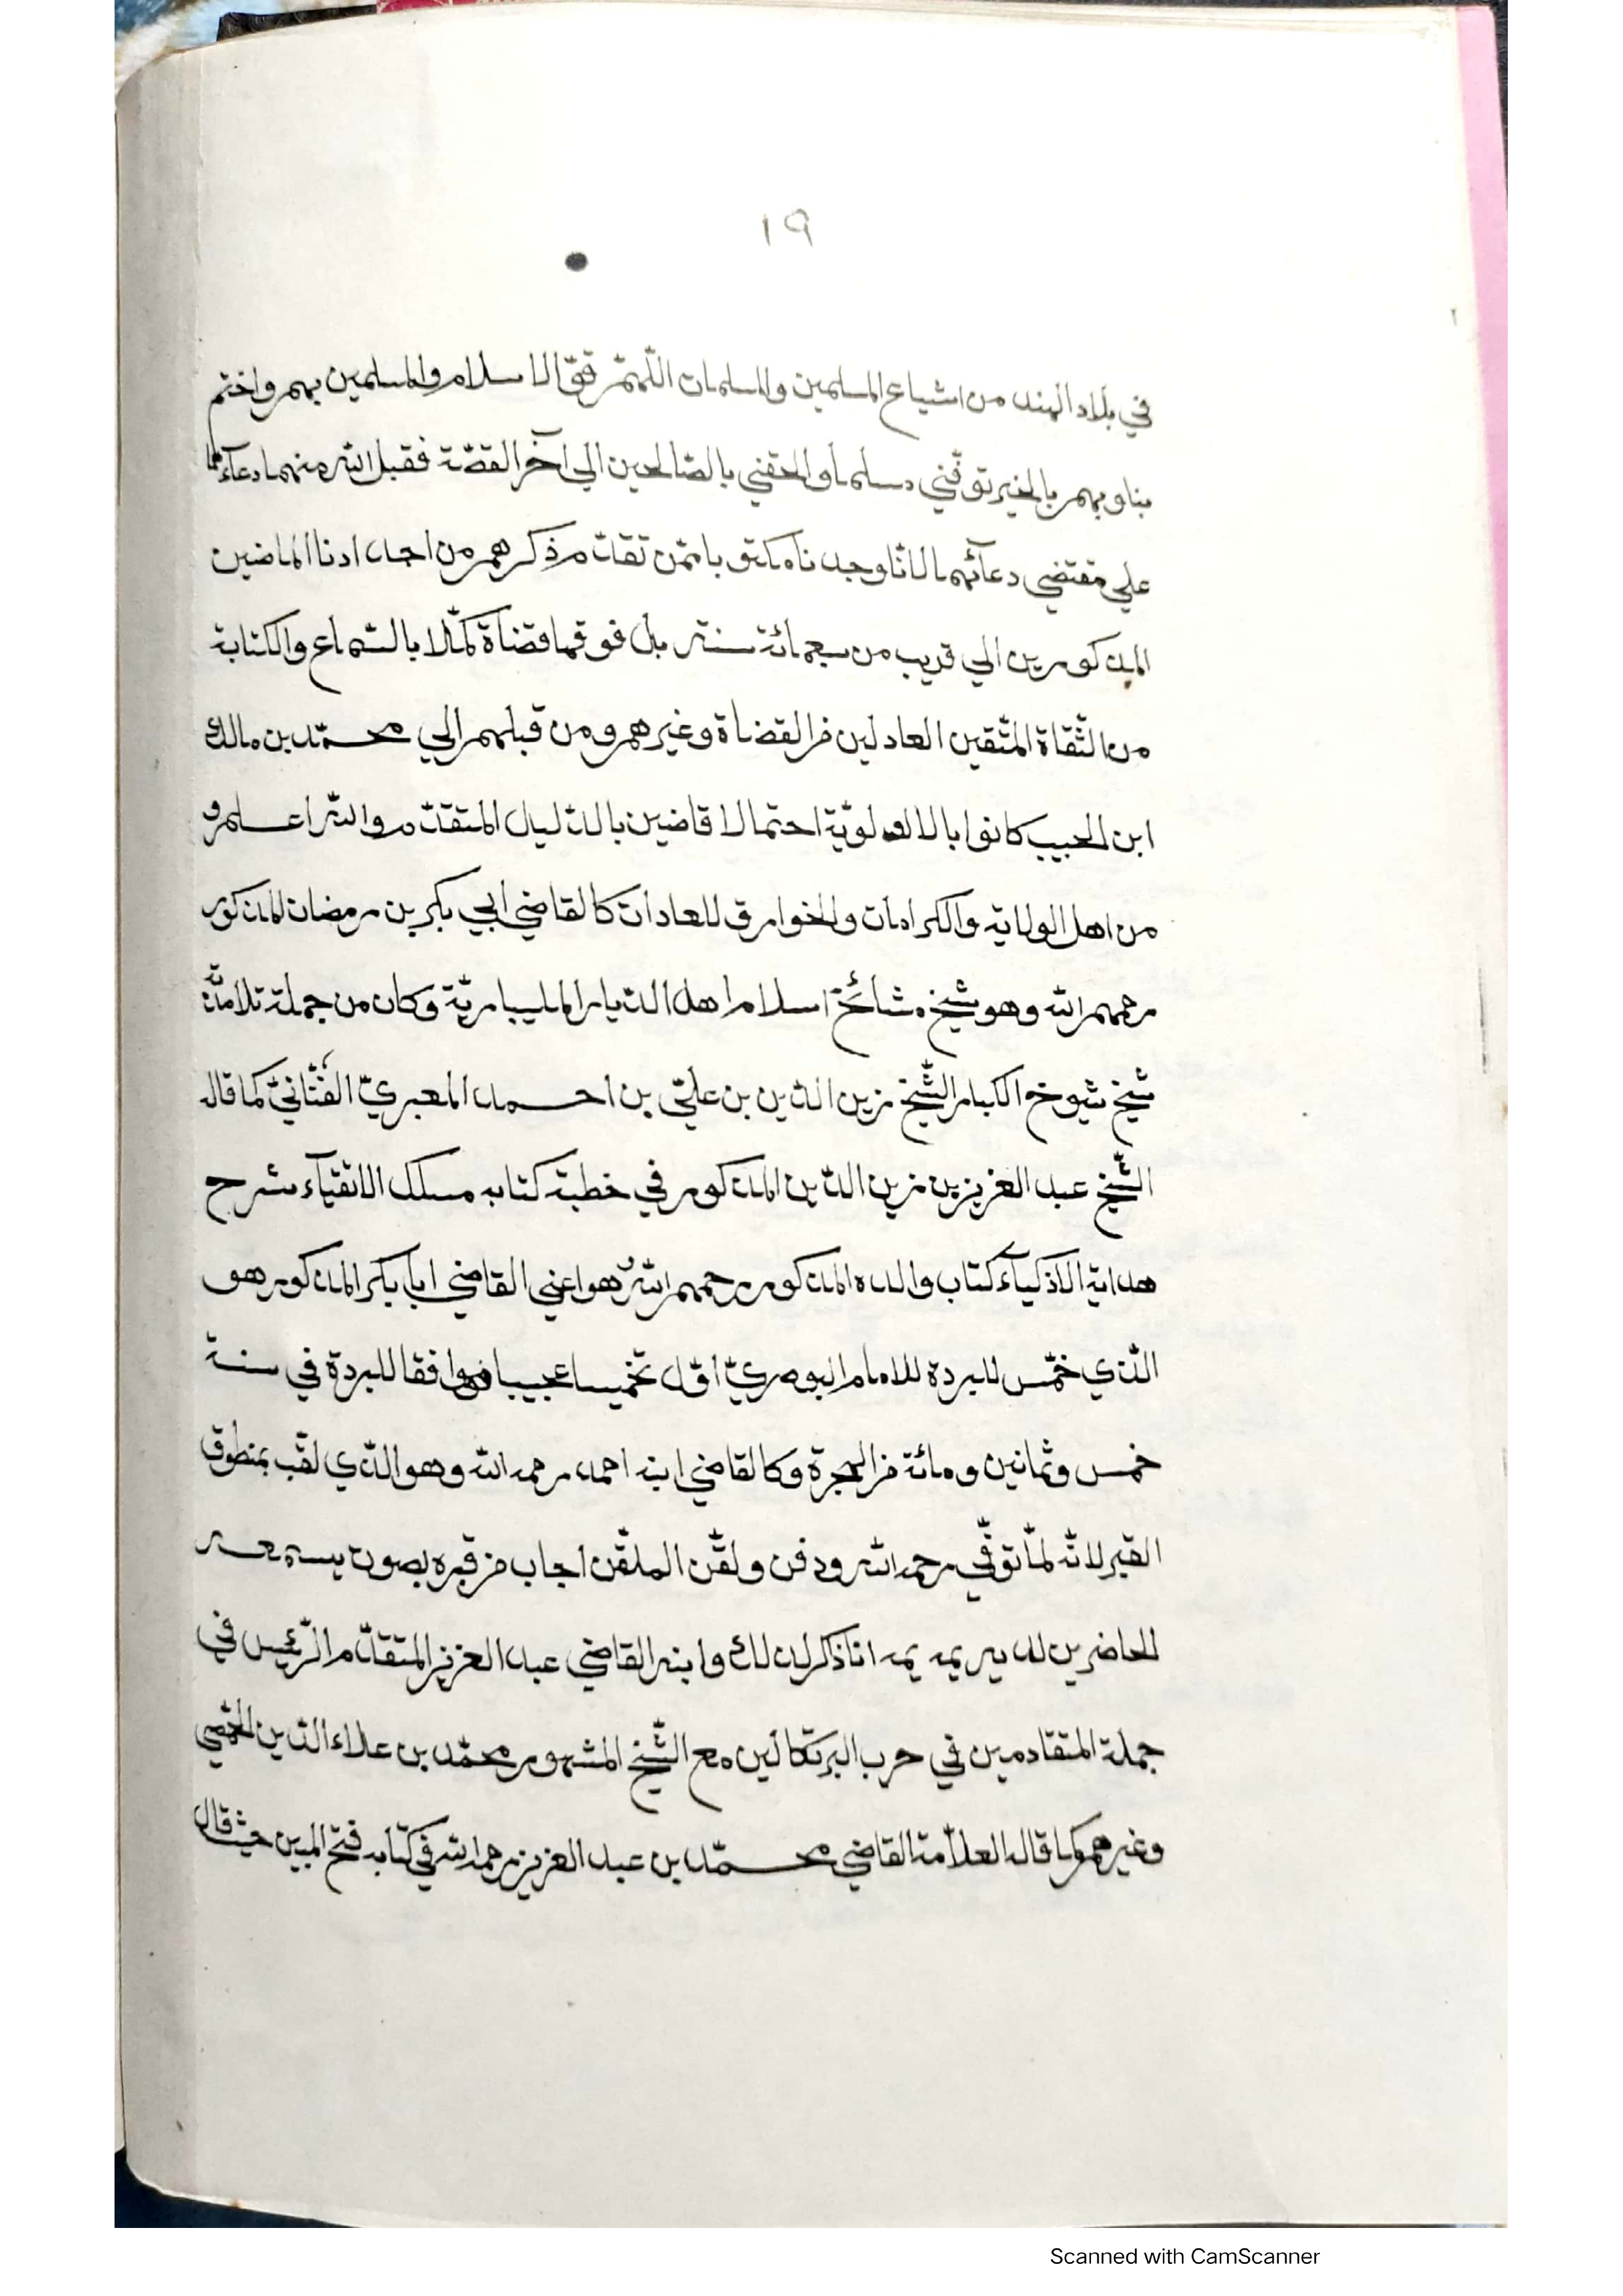 ١٩
في بلاد الهند من اشياع المسلمين والمسلمات اللّهمّ قوّ الاسلام والمسلمين بهم واختم
بنا وبهم بالخير توفّني مسلما والحقني بالصّالحين الي آخر القصّة فقبل الله منهما دعآءهما
علي مقتضي دعآئهما لانّا وجدناه مكتوبا ممّن تقدّم ذكرهم من اجدادنا الماضين
المذكورين الي قريب من سبعمائة سنة بل فوقها قضاة كمّلا بالسّماع والكتابة
من الثّقاة المتّقين العادلين من القضاة وغيرهم ومن قبلهم الي محمّد بن مالك
ابن الحبيب كانوا بالاولويّة احتمالا قاضين بالدّليل المتقدّم والله اعلم و
من اهل الولاية والكرامات والخوارق للعادات كالقاضي ابي بكر بن رمضان المذكور
رحمهم الله وهو شيخ مشائخ اسلام اهل الدّيار المليباريّة وكان من جملة تلامذته
شيخ شيوخ الكبار الشّيخ زين الدّين بن عليّ بن احمد المعبريّ الفنّانيّ كما قال
الشّيخ عبد العزيز بن زين الدّين المذكور في خطبة كتابه مسلك الاتقيآء شرح
هداية الاذكيآء كتاب والده المذكور رحمهم الله وهو اعني القاضي ابا بكر المذكور هو
الّذي خمّس للبردة للامام البوصريّ اوّل تخميسا عجيبا موافقا للبردة في سنة
خمس وثمانين ومائة من الهجرة وكالقاضي ابنه احمد رحمه الله وهو الّذي لقّب بمنطوق
القبر لانّه لمّا توفّي رحمه الله ودفن ولقّن الملقّن اجاب من قبره بصوت يسمعه
الحاضرين لديه انا ذاكر لذلك وابنه القاضي عبد العزيز المتقدّم الرّئيس في
جملة المتقادمين في حرب البرتكالين مع الشّيخ المشهور محمّد بن علاء الدّين الحمّصي
وغيرهم وكما قاله العلاّمة القاضي محمّد بن عبد العزيز رحمه الله في كتابه فتح المبين حيث قال
Scanned with CamScanner